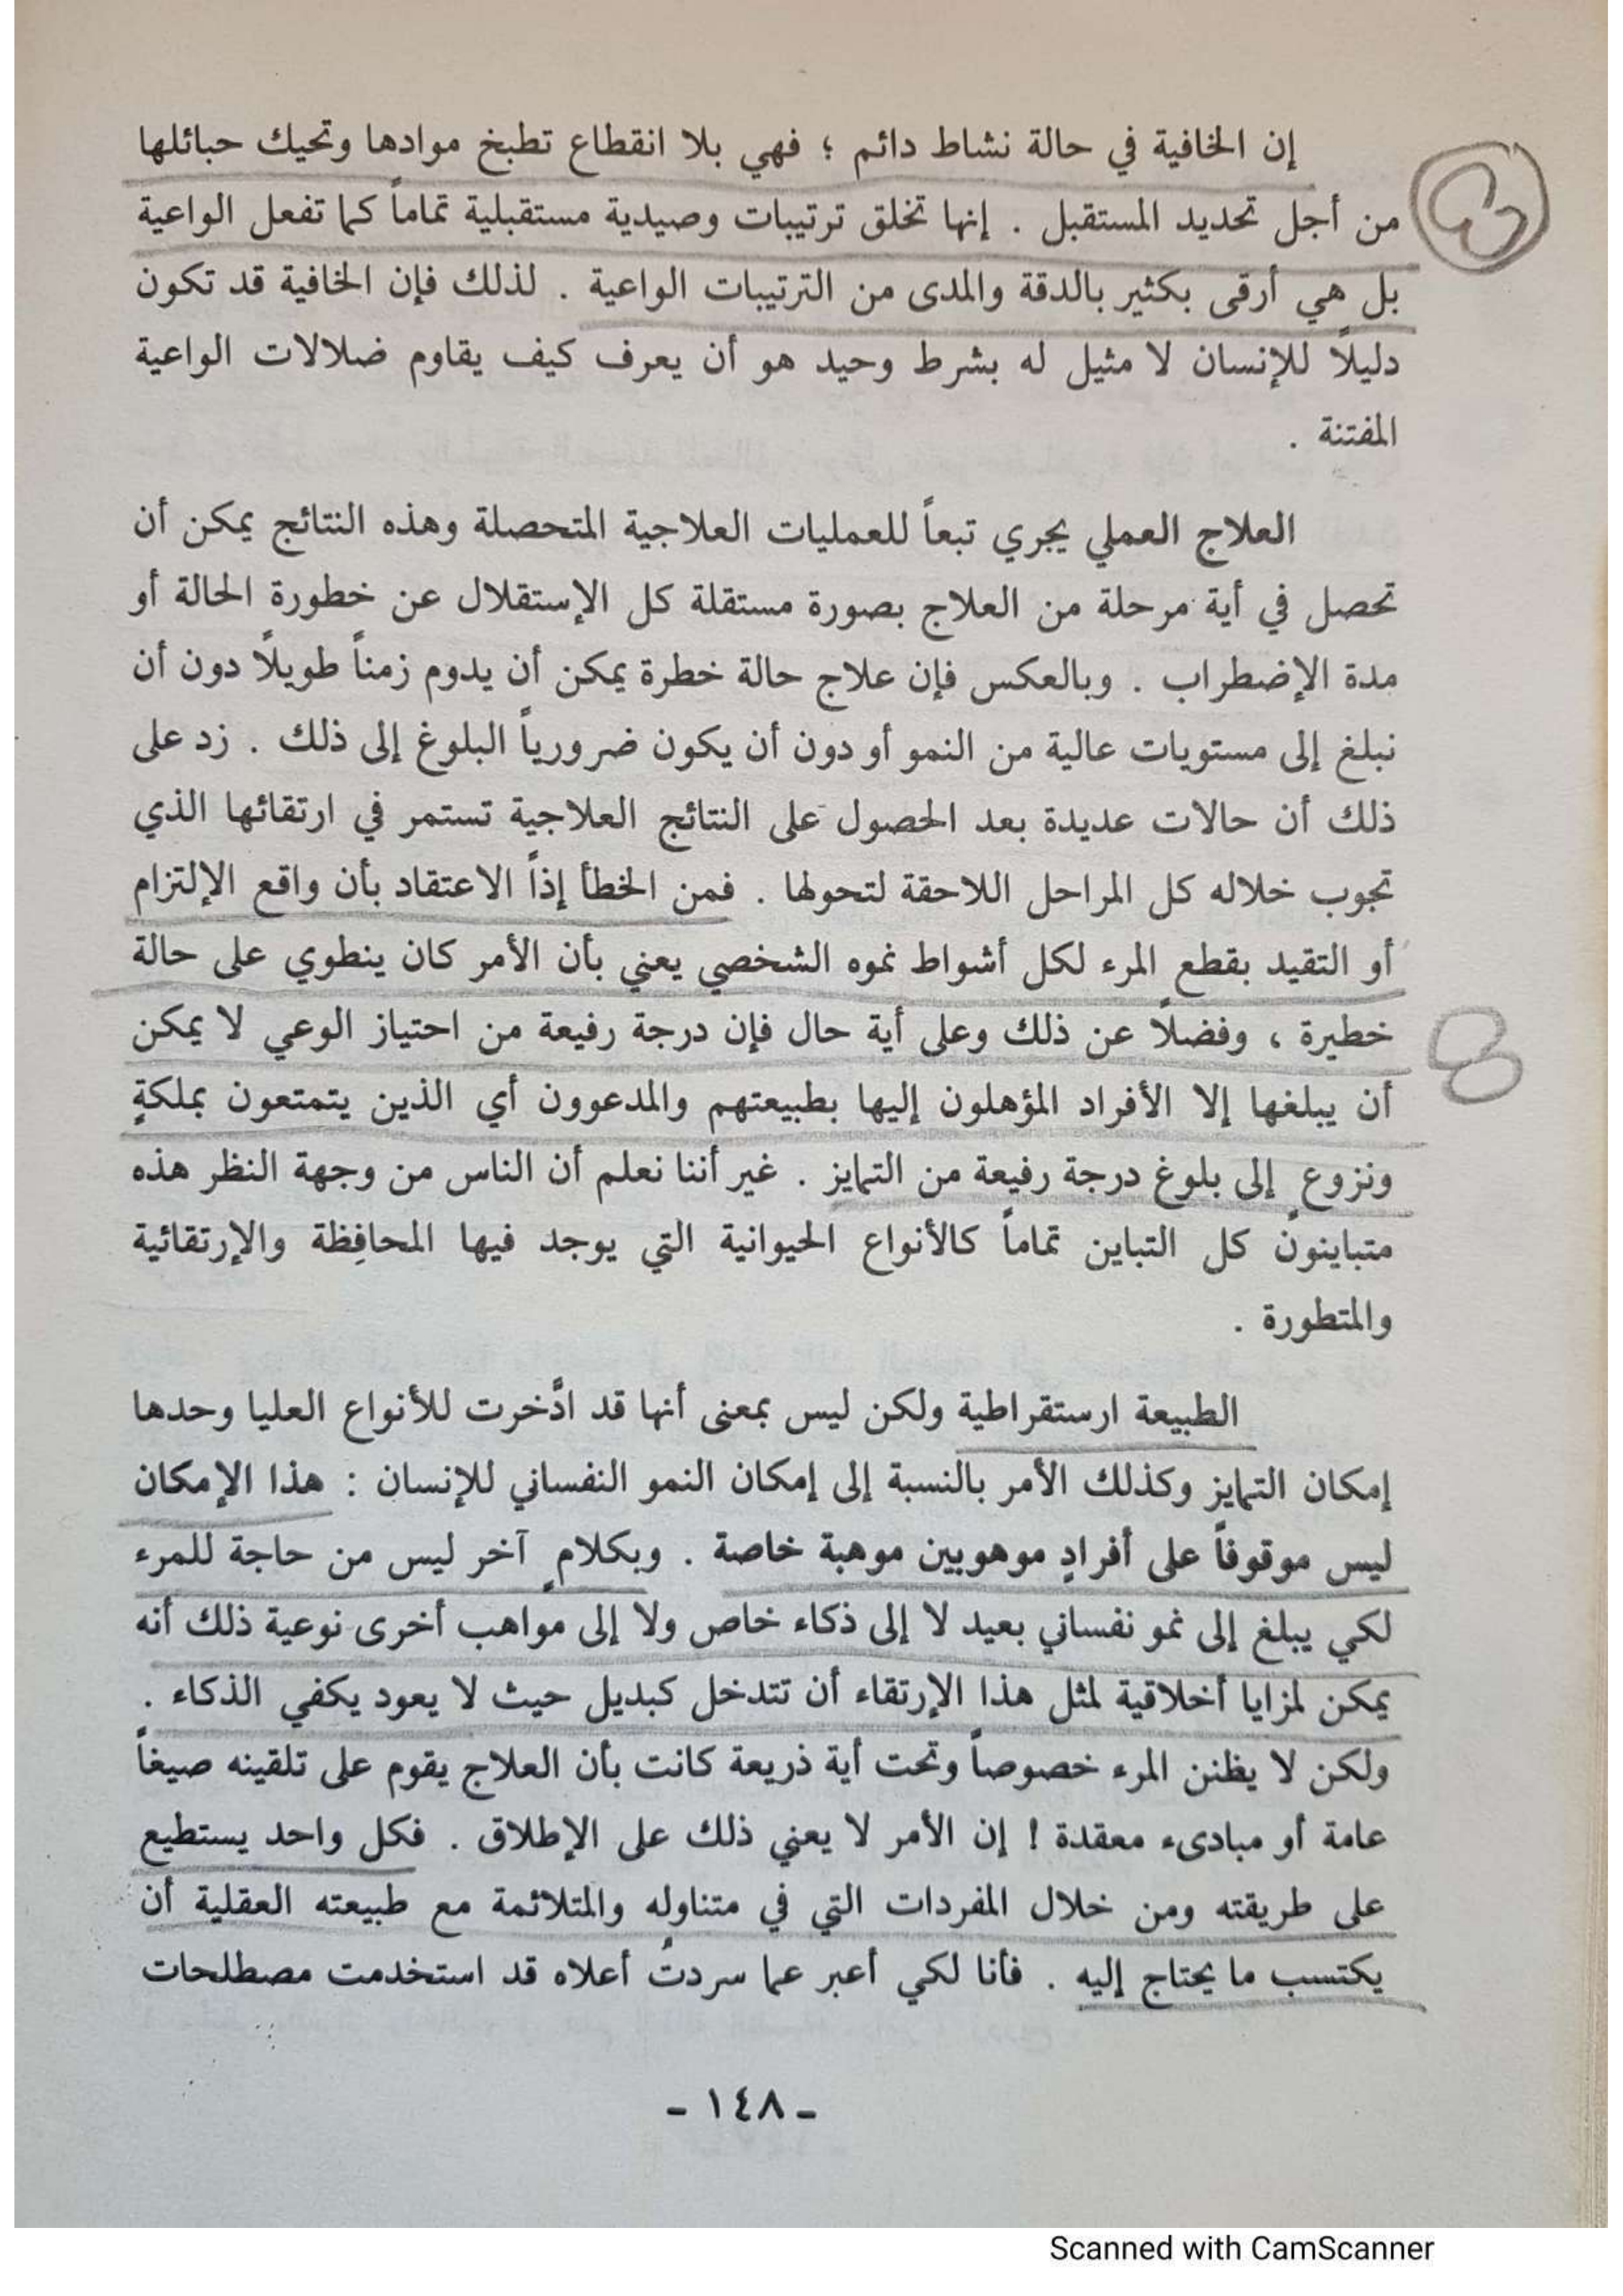 إن الخافية في حالة نشاط دائم ؛ فهي بلا انقطاع تطبخ موادها وتحيك حبائلها
من أجل تحديد المستقبل . إنها تخلق ترتيبات وصيدية مستقبلية تماماً كما تفعل الواعية
بل هي أرقى بكثير بالدقة والمدى من الترتيبات الواعية . لذلك فإن الخافية قد تكون
دليلاً للإنسان لا مثيل له بشرط وحيد هو أن يعرف كيف يقاوم ضلالات الواعية
المفتنة .
العلاج العملي يجري تبعاً للعمليات العلاجية المتحصلة وهذه النتائج يمكن أن
تحصل في أية مرحلة من العلاج بصورة مستقلة كل الإستقلال عن خطورة الحالة أو
مدة الإضطراب . وبالعكس فإن علاج حالة خطرة يمكن أن يدوم زمناً طويلاً دون أن
نبلغ إلى مستويات عالية من النمو أو دون أن يكون ضرورياً البلوغ إلى ذلك . زد على
ذلك أن حالات عديدة بعد الحصول على النتائج العلاجية تستمر في ارتقائها الذي
تجوب خلاله كل المراحل اللاحقة لتحولها . فمن الخطأ إذاً الاعتقاد بأن واقع الإلتزام
أو التقيد بقطع المرء لكل أشواط نموه الشخصي يعني بأن الأمر كان ينطوي على حالة
خطيرة ، وفضلاً عن ذلك وعلى أية حال فإن درجة رفيعة من احتياز الوعي لا يمكن
أن يبلغها إلا الأفراد المؤهلون إليها بطبيعتهم والمدعوون أي الذين يتمتعون بملكةٍ
ونزوع إلى بلوغ درجة رفيعة من التمايز . غير أننا نعلم أن الناس من وجهة النظر هذه
متباينون كل التباين تماماً كالأنواع الحيوانية التي يوجد فيها المحافِظة والإرتقائية
والمتطورة .
الطبيعة ارستقراطية ولكن ليس بمعنى أنها قد ادَّخرت للأنواع العليا وحدها
إمكان التمايز وكذلك الأمر بالنسبة إلى إمكان النمو النفساني للإنسان : هذا الإمكان
ليس موقوفاً على أفرادٍ موهوبين موهبة خاصة . وبكلامٍ آخر ليس من حاجة للمرء
لكي يبلغ إلى نمو نفساني بعيد لا إلى ذكاء خاص ولا إلى مواهب أخرى نوعية ذلك أنه
يمكن لمزايا أخلاقية لمثل هذا الإرتقاء أن تتدخل كبديل حيث لا يعود يكفي الذكاء .
ولكن لا يظنن المرء خصوصاً وتحت أية ذريعة كانت بأن العلاج يقوم على تلقينه صيغاً
عامة أو مبادىء معقدة ! إن الأمر لا يعني ذلك على الإطلاق . فكل واحد يستطيع
على طريقته ومن خلال المفردات التي في متناوله والمتلائمة مع طبيعته العقلية أن
يكتسب ما يحتاج إليه . فأنا لكي أعبر عما سردتُ أعلاه قد استخدمت مصطلحات
- ١٤٨ -
Scanned with CamScanner